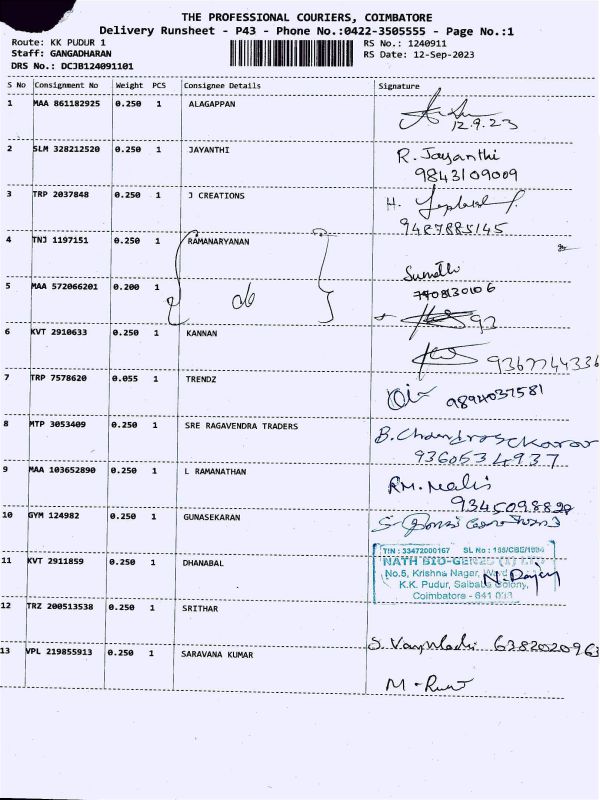 THE PROFESSIONAL COURIERS, COIMBATORE
Delivery Runsheet - P43 - Phone No.:0422-3505555 - Page No.:1
Route: KK PUDUR 1 RS No.: 1240911
Staff: GANGADHARAN RS Date: 12-Sep-2023
DRS No.: DCJB124091101
S No Consignment No Weight PCS Consignee Details Signature
1 MAA 861182925 0.250 1 ALAGAPPAN
12.9.23
2 SLM 328212520 0.250 1 JAYANTHI R. Jayanthi
9843109009
3 TRP 2037848 0.250 1 J CREATIONS H.
9487885145
4 TNJ 1197151 0.250 1 RAMANARYANAN
Sumathi
5 MAA 572066201 0.200 1
7708130106
6 KVT 2910633 0.250 1 KANNAN
9367744336
7 TRP 7578620 0.055 1 TRENDZ
9894037581
8 MTP 3053409 0.250 1 SRE RAGAVENDRA TRADERS B. Chandrasekarar
9360534937
9 MAA 103652890 0.250 1 L RAMANATHAN RM. Malis
9345098828
10 GYM 124982 0.250 1 GUNASEKARAN
TIN : 33472000167 SL No : 155/CBE/1994
11 KVT 2911859 0.250 1 DHANABAL NATH BIO-GENES (I) LTD
No.5, Krishna Nagar,
K.K. Pudur, Saibaba Colony,
Coimbatore - 641 038
12 TRZ 200513538 0.250 1 SRITHAR
6382020963
13 VPL 219855913 0.250 1 SARAVANA KUMAR